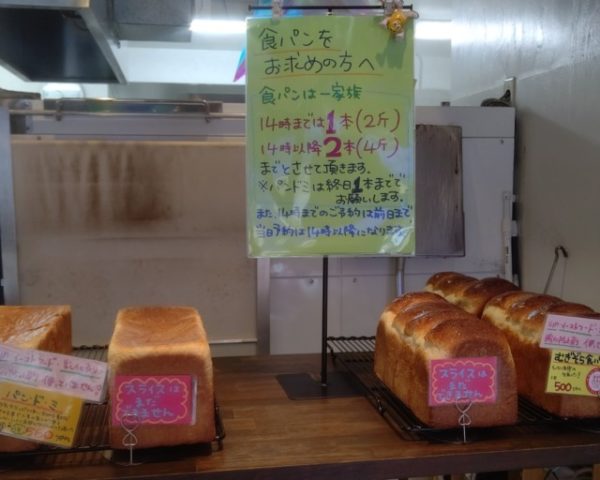 食パンを
お求めの方へ
食パンは一家族
14時までは1本(2斤)
14時以降2本(4斤)
までとさせて頂きます。
※パンドミは終日1本までで
お願いします。
また、14時までのご予約は前日まで
当日予約は14時以降になります。
スライスは
まだ
できません
スライスは
まだ
できません
パンドミ
むぎそら食パン
500